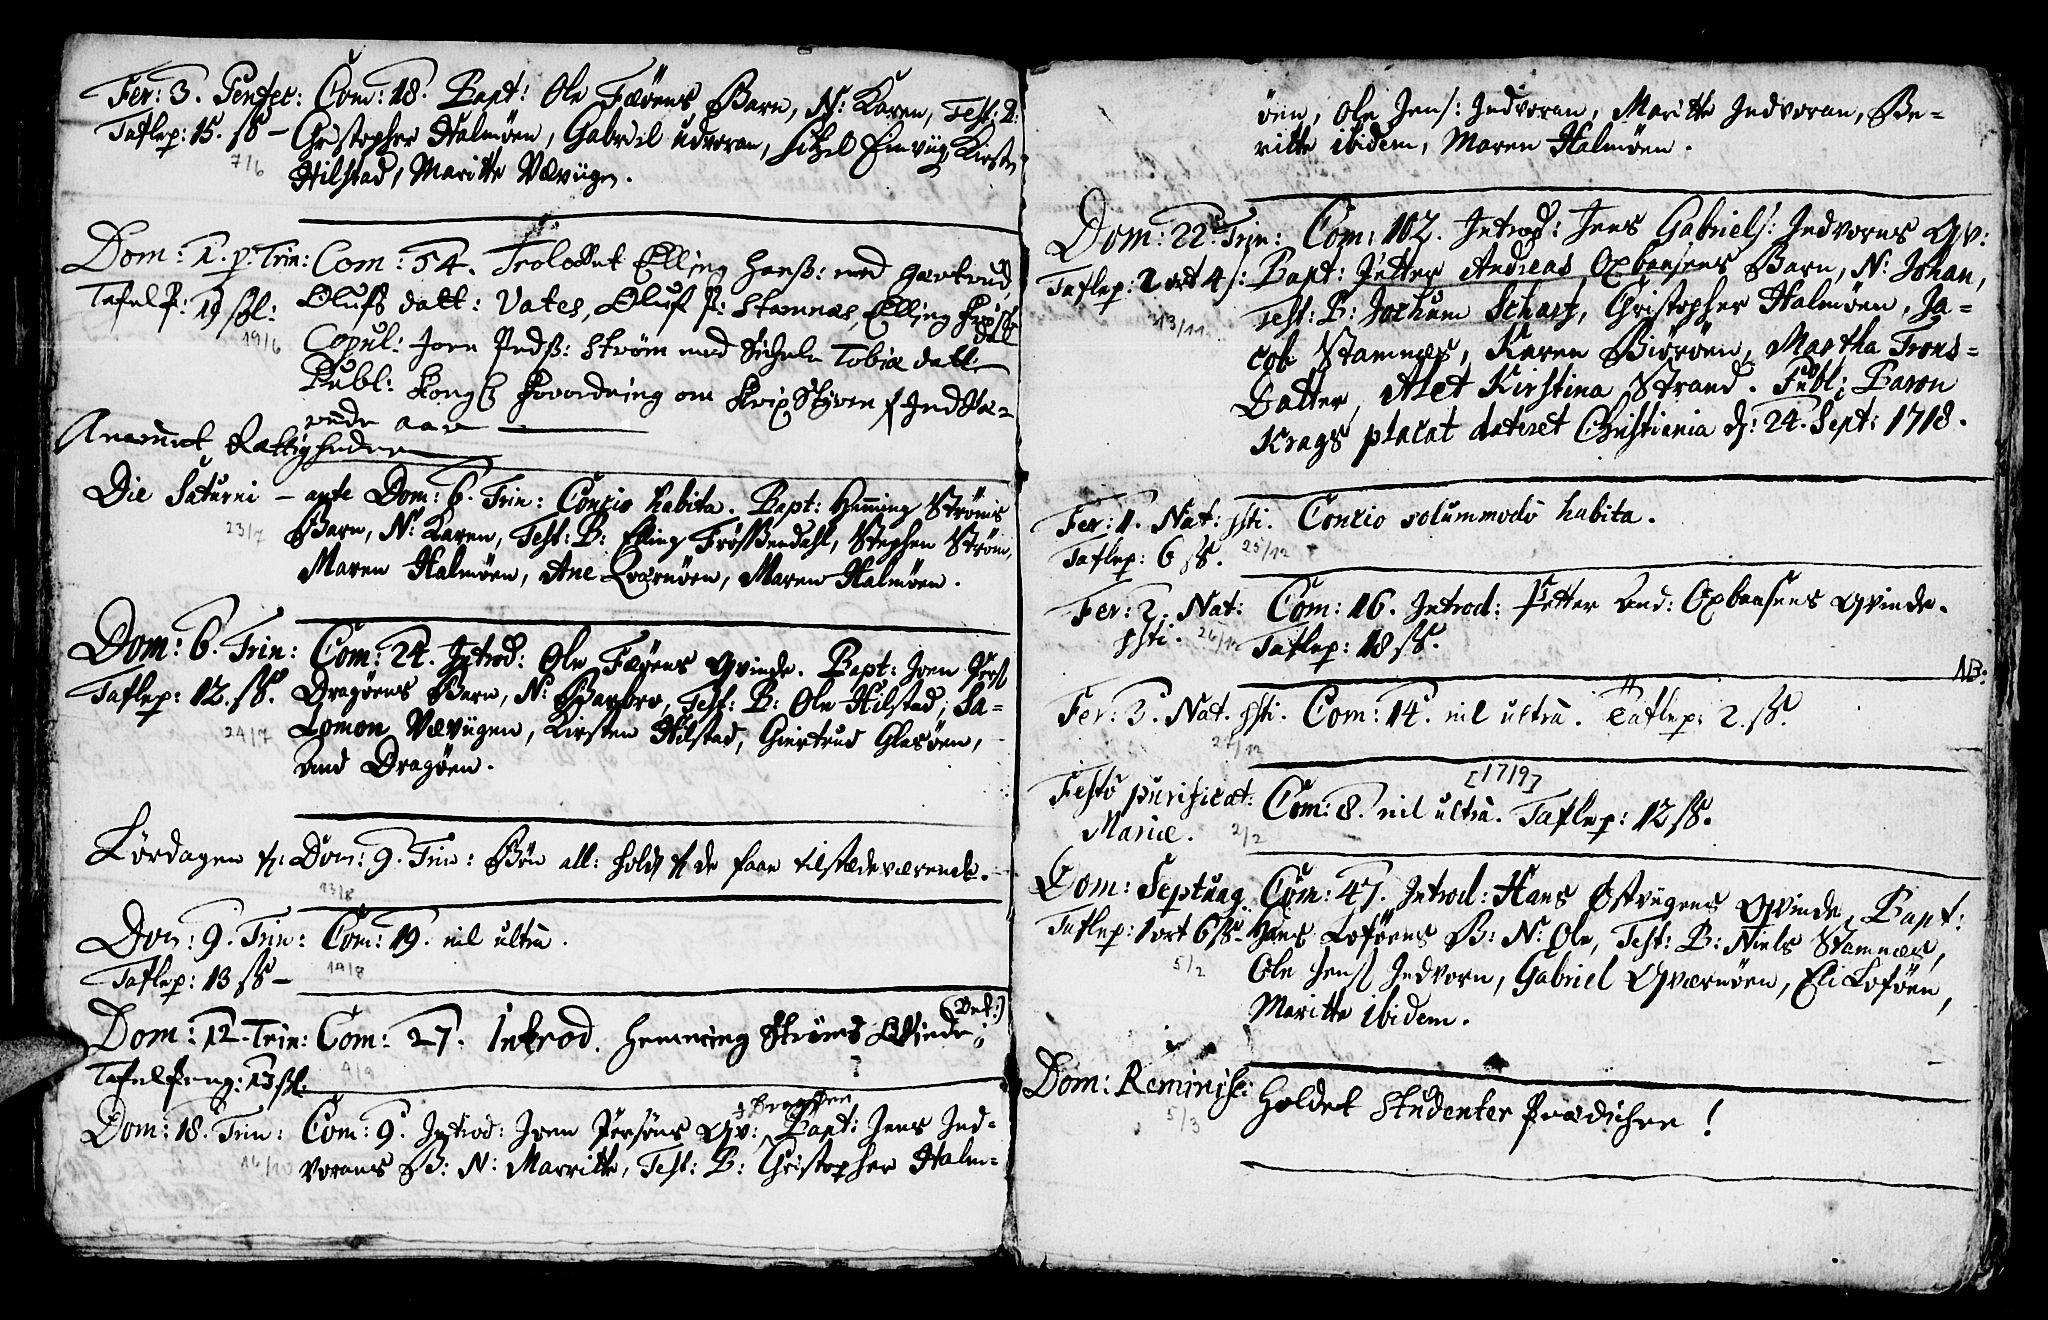 Fer: 3. Pentec: Com: 18. Bapt: Ole Færöens Barn, N: Karen, Test: B:
Taflep: 15. ß – Christopher Halmöen, Gabriel Udvoran, Sitzel Emvüg, Kirsten
7/6
Hilstad, Maritte Vævügen.
Dom: 1. p. Trin: Com: 54. Trolovet Elling Hanß: med Giertrud
Tafel P: 19 ßl: Olufs datt: Vates, Oluf P: Stamnæs, Elling
19/6
Copul: Joen Pedß: Strøm med Sichele Tobiæ datt
Publ: Kongl Forordning om
rende aar
Die Saturni – ante Dom: 6. Trin: Concio habita. Bapt: Henning Ströms
23/7
Barn, N: Karen, Test: B: Elling Frösßendahl, Stephen Ström,
Maren Halmöen, Ane Qværnöen, Maren Halmöen.
Dom: 6. Trin: Com: 24. Introd: Ole Færöens Qvinde. Bapt: Joen Pers
Taflep: 12. ß. Dragöens Barn, N: Barbro, Test: B: Ole Hilstad, Sa-
24/7
lomon Vævügen, Kirsten Hilstad, Giertrud Glasöen,
And Dragöen.
Lördagen f: Dom: 9. Trin: Bön all: hold f de faae tilstædeværende.
13/8
Dom: 9. Trin: Com: 19. nil ultra.
Taflep: 13 ß – 14/8
Dom: 12. Trin: Com: 27. Introd. Hemming Ströms Qvinde.
Tafelpeng: 13 ßl. 4/9
Dom: 18. Trin: Com: 9. Introd: Joen Persöns Qv: Bapt: Jens Ind-
16/10
vorans B: N: Marritte, Test: B: Christopher Halm-
öen, Ole Jens: Indvoran, Maritte Indvoran, Be-
ritte ibidem, Maren Halmöen.
Dom: 22. Trin: Com: 102. Introd: Jens Gabriels: Indvorns Qv:
Taflep: 2 ort 4 s: Bapt: Petter Andreas Oxbaasens Barn, N: Johan,
13/11
Test: B: Jochum Scharf, Christopher Halmöen, Ja-
cob Stamnæs, Karen Biöröen, Martha Trons-
Datter, Alet Kirstina Strand. Publ: Baron
Krags placat dateret Christiania d: 24. Sept: 1718.
Fer: 1. Nat: Xsti. Concio solummodo habita.
Taflep: 6 ß. 25/12
Fer: 2. Nat: Com: 16. Introd: Petter And: Oxbaasens Qvinde.
Xsti. 26/12 Taflep: 18 ß.
NB:
Fer: 3. Nat. Xsti. Com: 14. nil ultra. Taflep: 2. ß.
27/12
[1719]
Festo purificat: Com: 8. nil ultra. Taflep: 12 ß.
Mariæ. 2/2
Dom: Septuag. Com: 47. Introd: Hans Östvügens Qvinde, Bapt:
Taflep: 1 ort 6 ß – Hans Loföens B: N: Ole, Test: B: Niels Stamnæs,
5/2
Ole Jens Indvorn, Gabriel Qværnöen, Eli Loföen,
Maritte ibidem.
Dom: Reminisc: Holdet Studenter Prædichen!
5/3